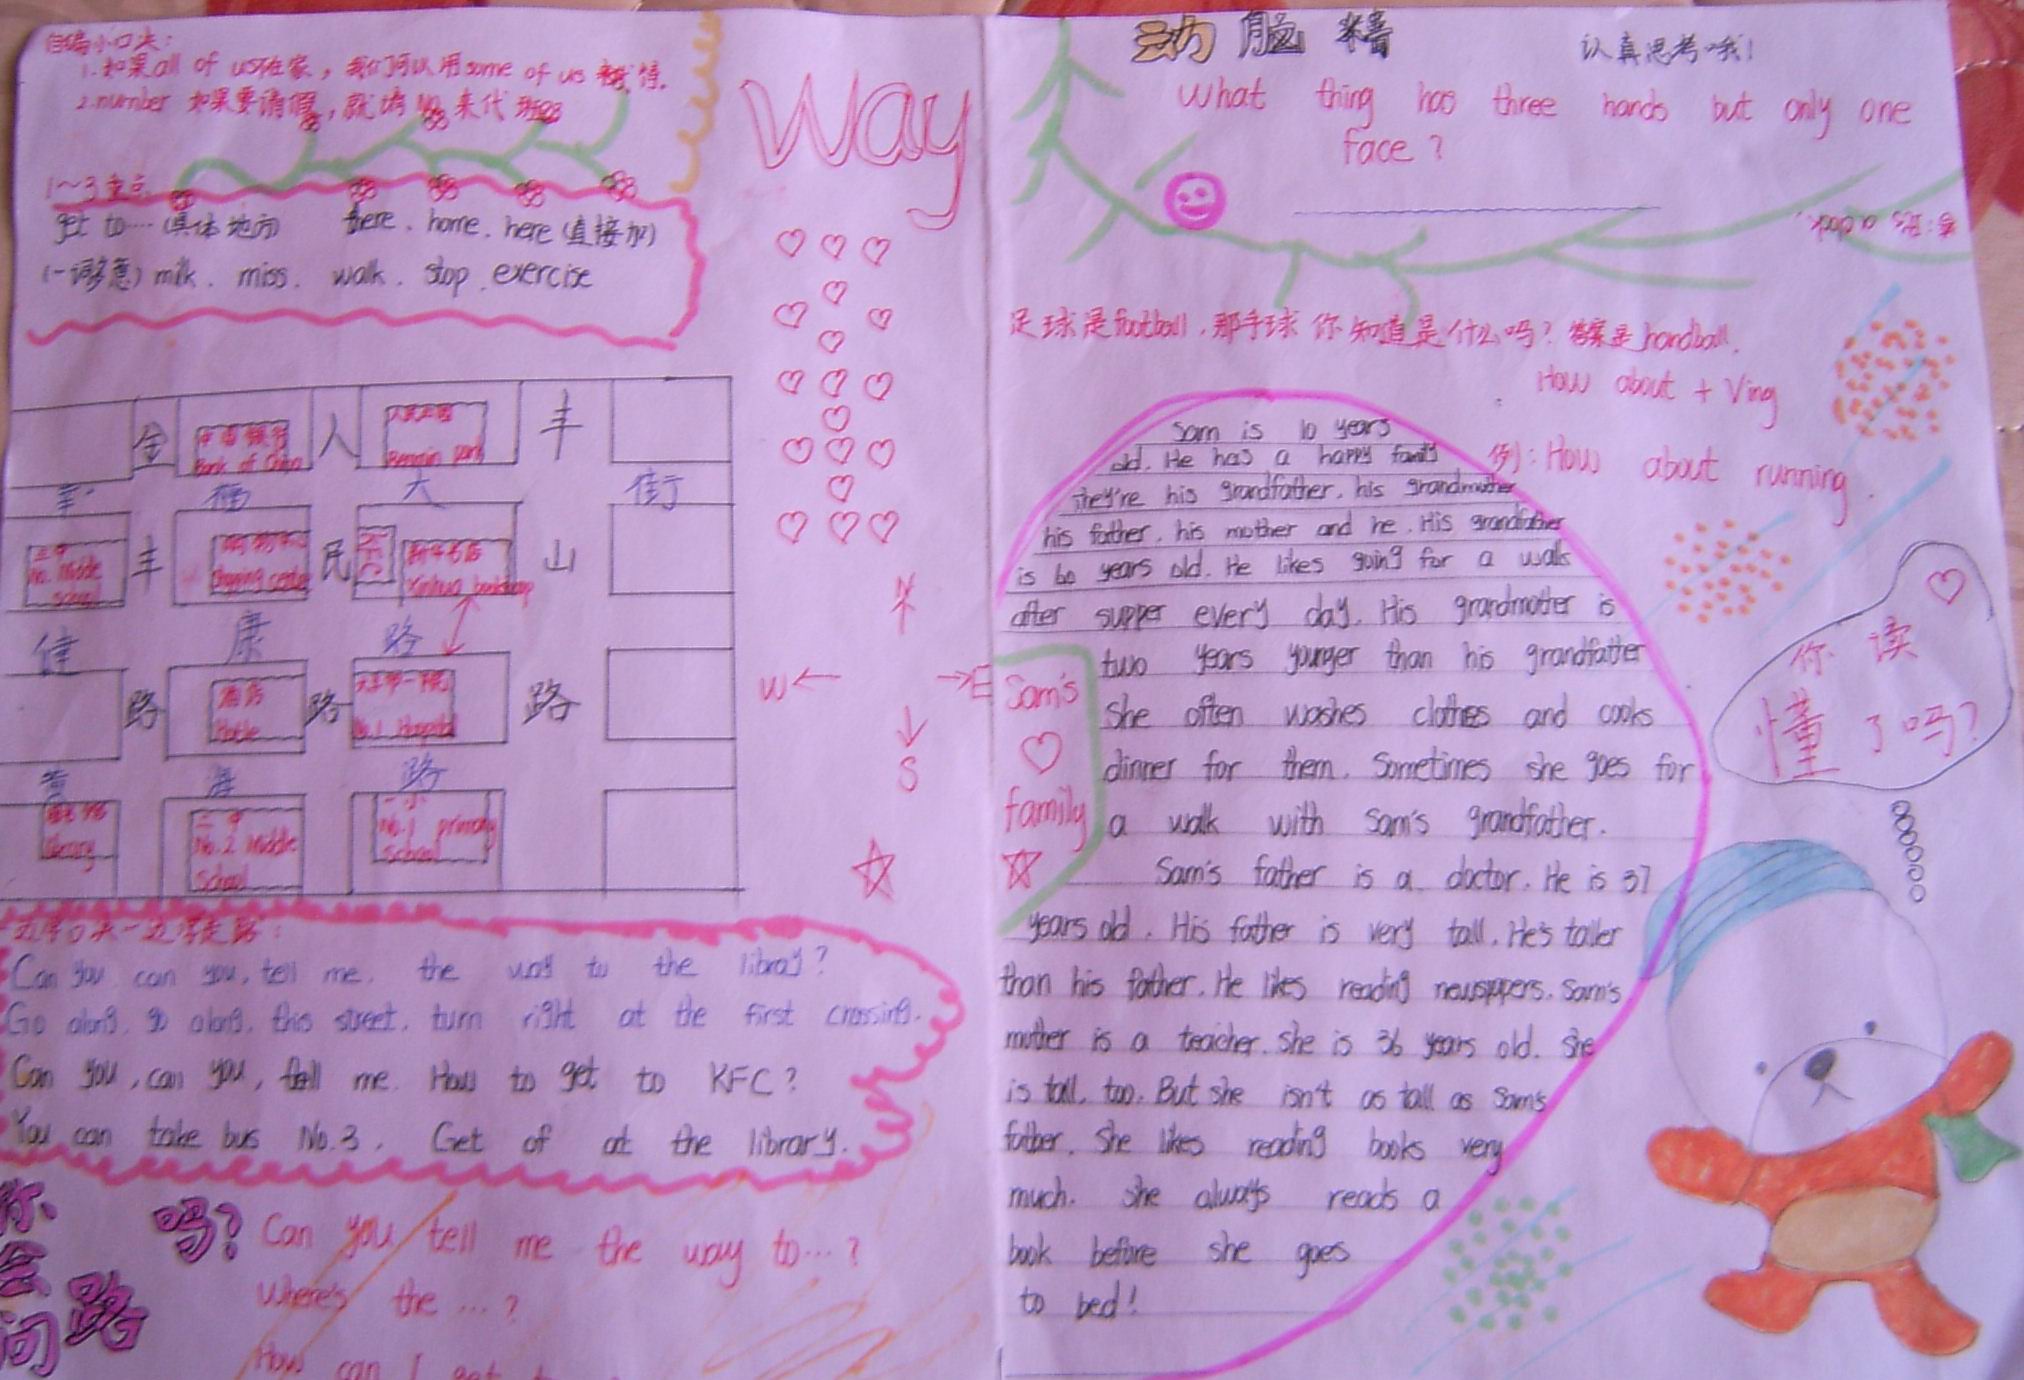 自编小口决:
1.如果all of us在家,我们可以用some of us
2.number 如果要请假,就请No.来代班
Way
1～3重点
get to…(具体地方) there. home. here(直接加)
(一词多意) milk. miss. walk. stop. exercise
金 人 丰
中国银行
Bank of China
人民公园
Renmin park
幸 福 大 街
丰 民 山
No. Middle
school
Shopping center
KFC
新华书店
Xinhua bookshop
健 康 路
路 路 路
酒店
Hotle
No.1 Hospital
青 海 路
library
二中
No.2 Middle
School
一小
No.1 primary
School
N
W E
S
一边学口决一边学走路:
Can you can you, tell me. the way to the libray?
Go along, go along, this street, turn right at the first crossing.
Can you, can you, tell me. How to get to KFC?
You can take bus No.3. Get of at the library.
你会问路吗?
Can you tell me the way to…?
Where's the …?
How can I get
动脑精
认真思考哦!
What thing has three hands but only one
face?
答:It's a clock.
足球是football,那手球你知道是什么吗?答案是handball.
How about + Ving
例:How about running.
Sam's
family
Sam is 10 years
old. He has a happy family
They're his grandfather, his grandmother
his father, his mother and he. His grandfather
is 60 years old. He likes going for a walk
after supper every day. His grandmother is
two years younger than his grandfather
She often washes clothes and cooks
dinner for them. Sometimes she goes for
a walk with Sam's grandfather.
Sam's father is a doctor. He is 37
years old. His father is very tall. He's taller
than his father. He likes reading newsppers. Sam's
mother is a teacher. She is 36 years old. She
is tall, too. But she isn't as tall as Sam's
father. She likes reading books very
much. She always reads a
book before she goes
to bed!
你读
懂了吗?